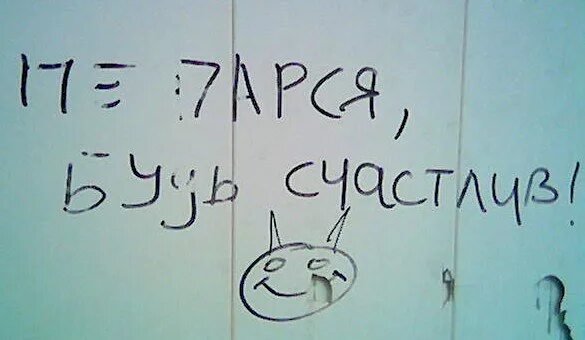 НЕ ПАРСЯ,
БУДЬ СЧАСТЛИВ!
Я